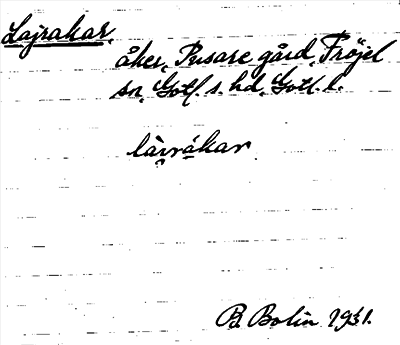 Lajrakar.
åker, Pusare gård, Fröjel
sn, Gotl. s. hd, Gotl. l.
làjrákar
B. Bolin 1931.